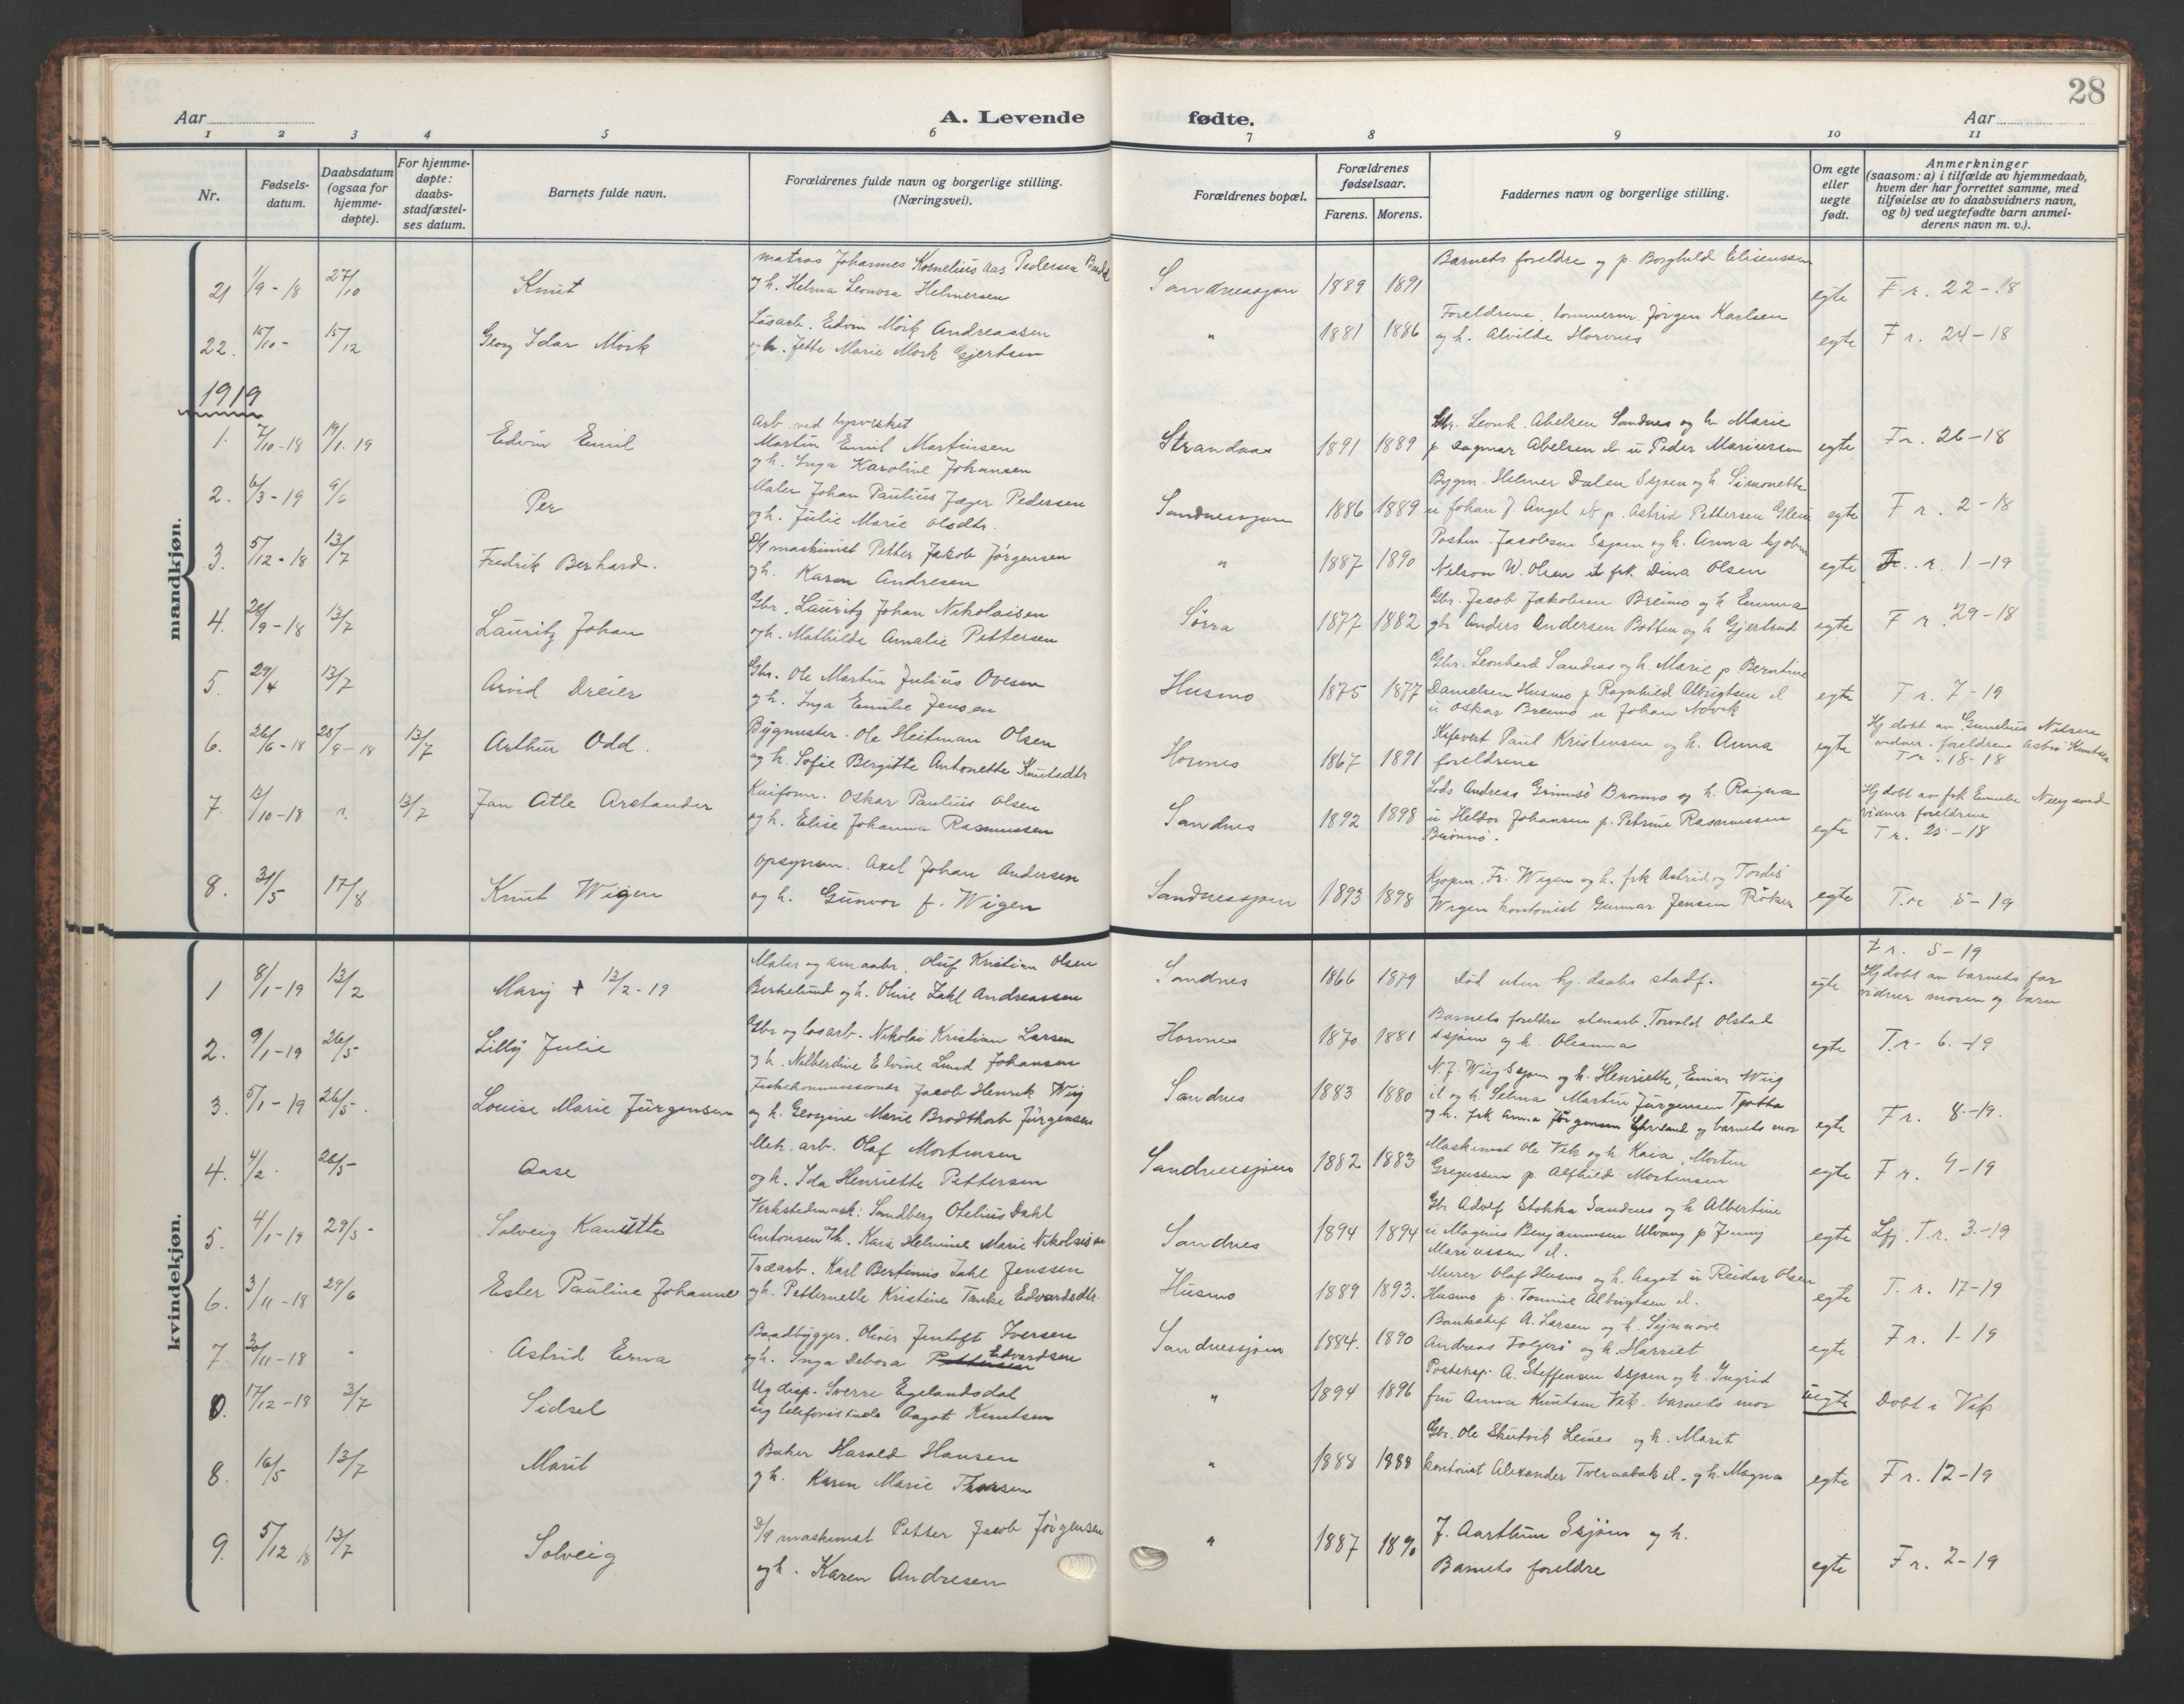 28
Aar A. Levende fødte. Aar
1 2 3 4 5 6 7 8 9 10 11
Nr. Fødsels-datum. Daabsdatum (ogsaa for hjemme-døpte). For hjemme-døpte: daabs-stadfæstel-ses datum. Barnets fulde navn. Forældrenes fulde navn og borgerlige stilling. (Næringsvei). Forældrenes bopæl. Forældrenes fødselsaar. Farens. Morens. Faddernes navn og borgerlige stilling. Om egte eller uegte født. Anmerkninger (saasom: a) i tilfælde av hjemmedaab, hvem der har forrettet samme, med tilføielse av to daabsvidners navn, og b) ved uegtefødte barn anmel-derens navn m. v.).
mandkjøn.
matros Johannes Kornelius Aas Pedersen Barnets foreldre og p. Borghild Elisenssen
21 1/9-18 27/10 Knut og h. Helma Leonora Helmersen Sandnessjøen 1889 1891 egte F r. 22-18
Løsarb. Edvin Mörk Andreassen Foreldrene, tømmerm. Jörgen Karlsen
22. 15/10- 15/12 Georg Idar Mörk og h. Jette Marie Mörk Gjertsen " 1881 1886 og h. Alvilde Horvnes egte F r. 24-18
1919
Arb. ved lysverket Gbr. Leonh. Abelsen Sandnes og h. Marie
1. 7/10-18 19/1.19 Edvin Emil Martin Emil Martinsen Strandaas 1891 1889 p Dagmar Abelsen u Peder Marinersen egte Fr. 26-18
og h. Inga Karoline Johansen
Maler Johan Paulius Jæger Pedersen Bygm. Helmer Dalen Ssjøen og h. Simonette
2. 6/3-19 9/6 Per og h. Julie Marie Olsdtr. Sandnessjøen 1886 1889 u Johan J. Angel p. Astrid Pettersen egte F r. 2-18
D/S maskinist Petter Jakob Jørgensen Postm. Jacobsen Ssjøen og h. Anna
3. 5/12-18 13/7 Fredrik Berhard. og h. Karen Andresen " 1887 1890 Nelson W. Olsen frk Dina Olsen egte F r. 1-19
Gbr. Lauritz Johan Nikolaisen Gbr. Jacob Jakobsen Breimo og h Emma
4. 28/9-18 13/7 Lauritz Johan og h. Mathilde Amalie Pettersen Sörra 1877 1882 gbr Anders Andersen Botten og h Gjertrud egte F r. 29-18
Gbr. Ole Martin Julius Ovesen Gbr. Leonhard Sandnes og h. Marie p Berntine
5. 29/4 13/7 Arvid Dreier og h. Inga Emilie Jensen Husmo 1875 1877 Danielsen Husmo p Ragnhild Albrigtsen egte F r. 7-19
u Oskar Breimo u Johan Novik
Bygmester. Ole Heitman Olsen Paul Kristensen og h. Anna Hj döbt av Nilsen
6. 26/6-18 28/9-18 13/7 Arthur Odd. og h. Sofie Bergitte Antonette Knutsdtr Horvnes 1867 1891 foreldrene egte vidner. foreldrene Knutsen
F r. 18-18
Kaiform. Oskar Paulius Olsen Lods Andreas Grimsö Brönnö og h. Ragna Hj döbt av frk Nergaard
7. 13/10-18 13/7 Jan Atle Arstander og h. Elise Johanna Rasmussen Sandnes 1892 1898 u Heldor Johansen p. Petrine Rasmussen egte vidner foreldrene
Brönnö. F r. 25-18
opsynsm. Axel Johan Andersen Kjøpm. Fr. Wigen og h. frk Astrid og Tordis
8. 31/5 17/8 Knut Wigen og h. Gunvor f. Wigen Sandnessjøen 1893 1898 Wigen kontorist Gunnar Jensen egte F.r. 5-19
kvindekjøn.
Maler og Olaf Kristian Olsen F r. 5-19
1 8/1-19 13/2 Mary + 13/2-19 Berkelund og h. Oline Zahl Andreassen Sandnes 1866 1879 Död uten hj. daabs stadf. egte Hj döbt av barnets far
vidner moren og barn
Gbr og løsarb. Nikolai Kristian Larsen Barnets foreldre stenarb. Torvald Olstad
2. 9/1-19 26/5- Lilly Julie og h. Nelberdine Elvine Lund Johansen Horvnes 1870 1881 Ssjøen og h. Oleanna egte F.r. 6.-19
Fiskekommissionær Jacob Henrik Wiig N. J. Wiig Ssjøen og h. Henriette, Einar Wiig
3. 5/1-19 26/5-. Louise Marie Jürgensen og h. Georgine Marie Brodtkorb Jürgensen Sandnes 1883 1880 og h. Selma Martin Jürgensen Tjøtta egte Fr. 8-19.
og h. frk Anna Jörgensen og barnets mor
Mek. arb. Olaf Mortensen Maskinist Ole Vik og h Kaia, Morten
4. 4/2. 26/5- Aase og h. Ida Henriette Pettersen Sandnessjøen 1882 1883 Gregussen p. Alfhild Mortensen egte F r. 9-19
Verkstedmask. Sundberg Otelius Dahl Gbr Adolf Stokka Sandnes og h Albertine
5. 4/1-19 29/5- Solveig Kanutte Antonsen og h. Kaia Helmine Marie Nikolaisen Sandnes 1894 1894 u Magnus Benjaminsen Ulvang p Jenny egte Lfj. F.r. 3-19
Mariussen
Træarb. Karl Bertinus Zahl Jenssen Murer Olaf Husmo og h. Aagot u Reidar Olsen
6. 3/11-18 29/6 Ester Pauline Johanne og h. Petternelle Kristine Edvardsdtr Husmo 1889 1893. Husmo p. Tomine Albrigtsen egte F. r. 17-19
Baadbygger. Oliver Jentoft Iversen Bankchef A. Larsen og h. Synnøve
7. 30/11-18 " Astrid Erna og h. Inga Debora Pettersen Edvardsen Sandnessjøen 1884. 1890 Andreas og h. Harriet egte F r. 1-19
Ug disp. Sverre Egelandsdal Posteksp. A. Steffensen Ssjøen og h. Ingrid
0. 17/12-18 3/7 Sidsel ug telefonistinde Aagot Knutsen " 1894 1896 fru Anna Knutsen Vik. barnets mor uegte Döbt i Vik
Baker Harald Hansen Gbr. Ole Skutvik Leines og h. Marit
8. 16/5 13/7 Marit og h. Karen Marie Thorsen " 1888 1888 kontorist Alexander og h. Magna egte F r. 12-19
D/S maskinist Petter Jacob Jörgensen J. Aarthun Ssjöen og h.
9. 5/12 18 13/7 Solveig og h. Karen Andresen " 1887 1890 Barnets foreldre egte F r. 2-19